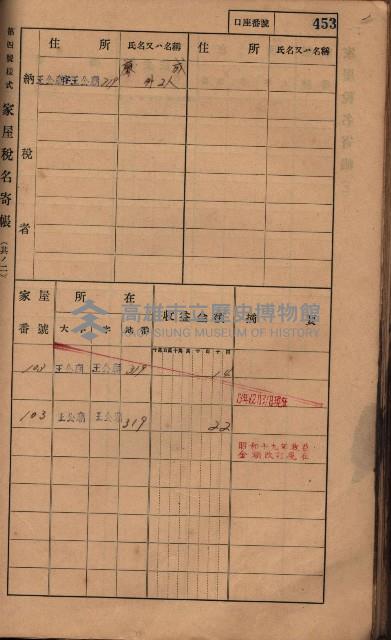 口座番號 453
第四號樣式 家屋稅名寄帳 (其ノ二)
納稅者
住所 氏名又ハ名稱 住所 氏名又ハ名稱
王公廟字王公廟319 外2人
家屋番號 所在 大字 字 地番 收益金額 摘要
高雄市立歷史博物館
KAOHSIUNG MUSEUM OF HISTORY
103 王公廟 王公廟 319 14
103 王公廟 王公廟 319 22
昭和十九年收益
金額改訂